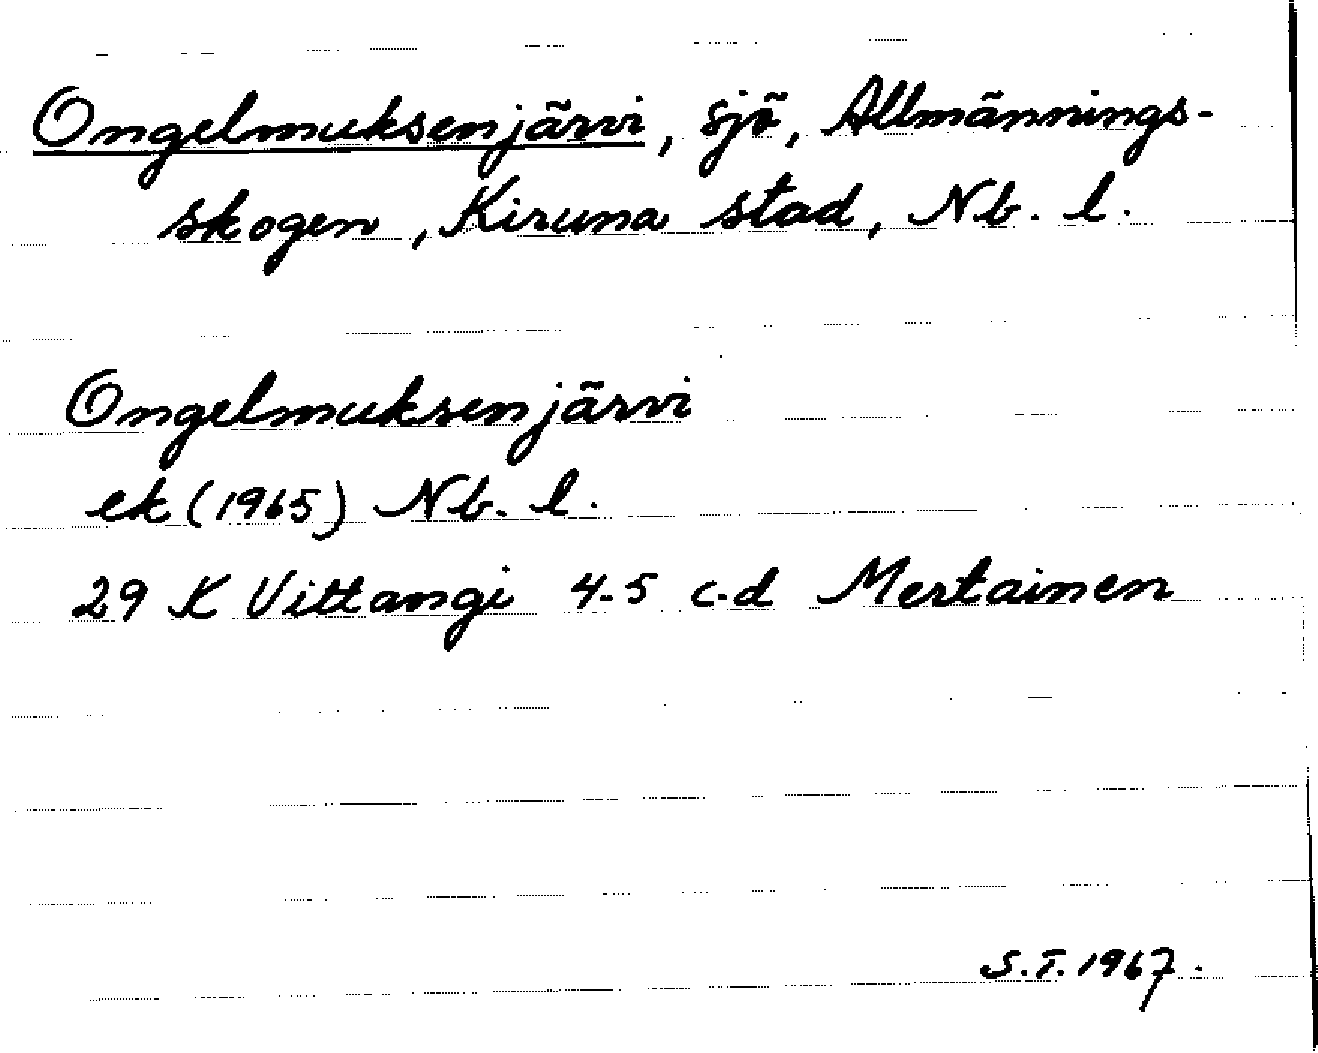 Ongelmuksenjärvi, sjö, Allmännings-
skogen, Kiruna stad, Nb. l.
Ongelmuksenjärvi
ek (1965) Nb. l.
29 K Vittangi 4-5 c-d Mertainen
S.T. 1967.